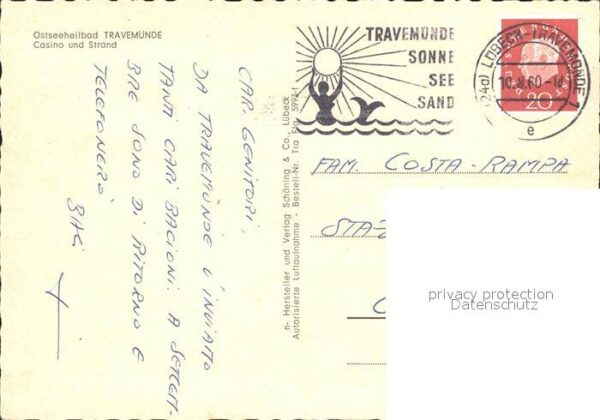 Ostseeheilbad TRAVEMÜNDE
Casino und Strand
CARI GENITORI,
DA TRAVEMÜNDE V'INVIAMO
TANTI CARI BACIONI. A SETTEM-
BRE SONO DI RITORNO E
TELEFONERÒ
n- Hersteller und Verlag Schöning & Co., Lübeck
Autorisierte Luftaufnahme - Bestell-Nr. Tra
TRAVEMÜNDE
SONNE
SEE
SAND
(24a) LÜBECK-TRAVEMÜNDE 1
10.8.60
e
20
FAM. COSTA-RAMPA
privacy protection
Datenschutz